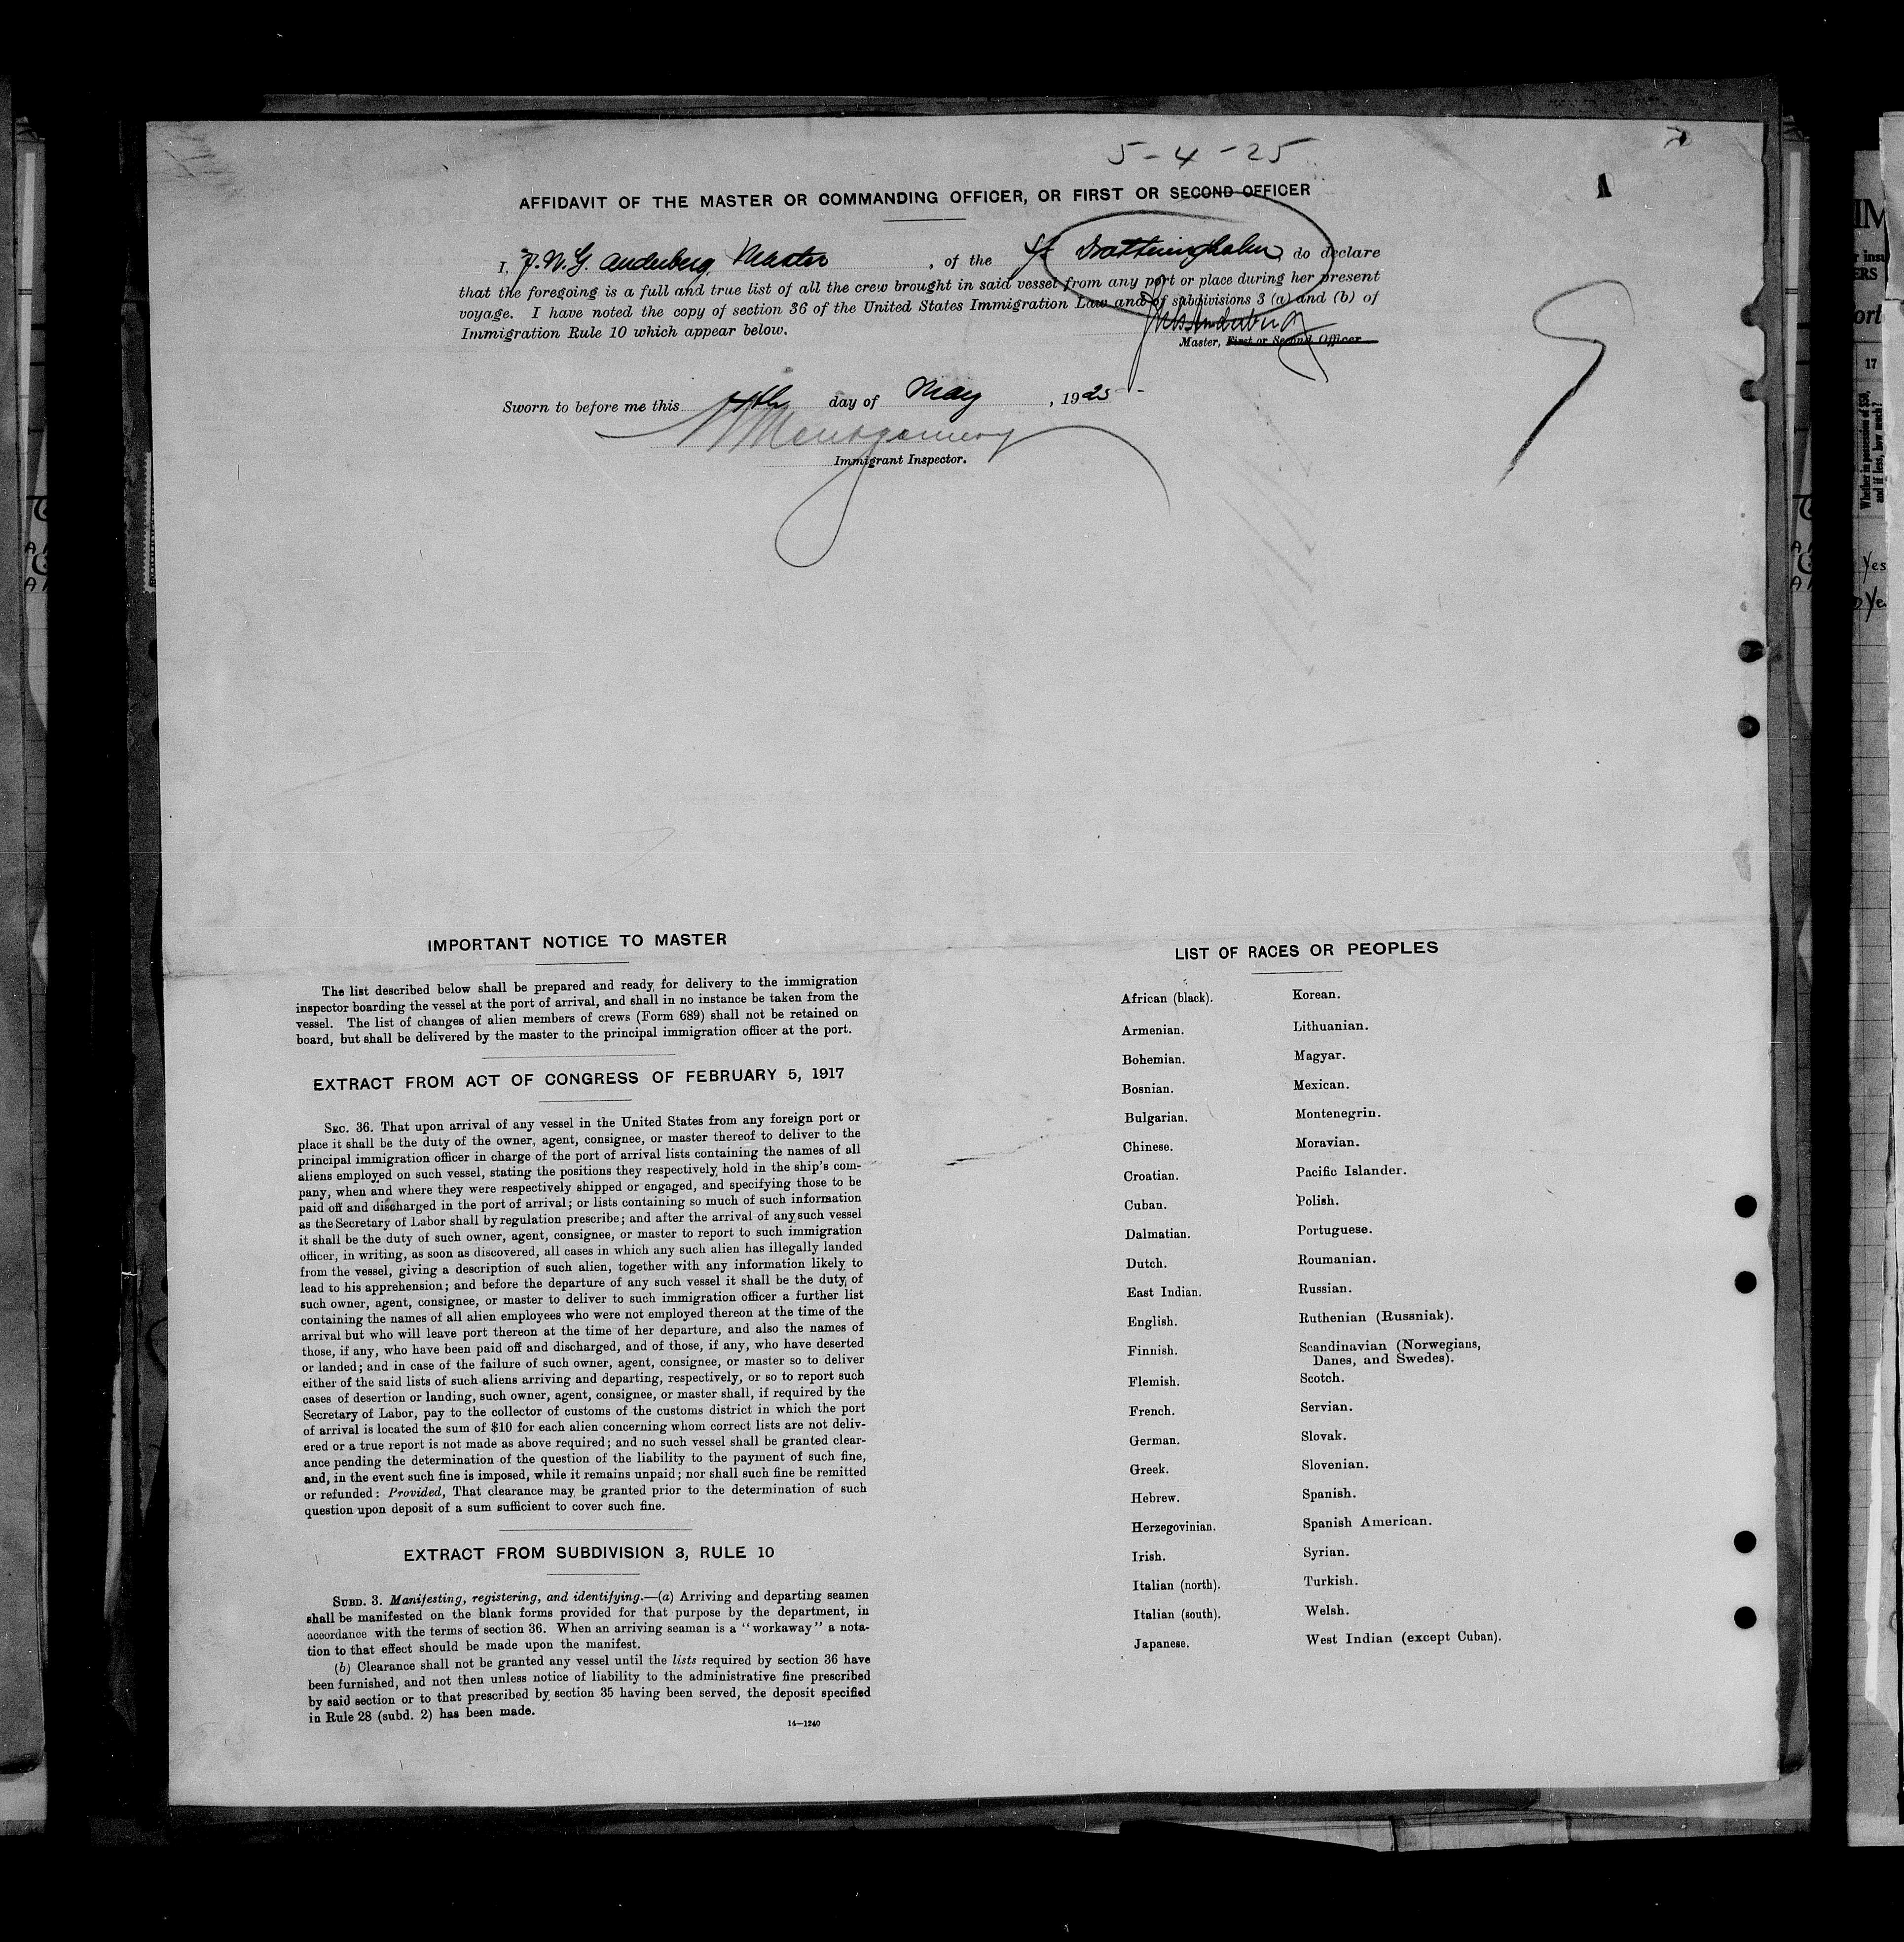 5-4-25
AFFIDAVIT OF THE MASTER OR COMMANDING OFFICER, OR FIRST OR SECOND OFFICER
I, Anderberg, Master, of the Drottningholm, do declare
that the foregoing is a full and true list of all the crew brought in said vessel from any port or place during her present
voyage. I have noted the copy of section 36 of the United States Immigration Law and of subdivisions 3 (a) and (b) of
Immigration Rule 10 which appear below.
Master, First or Second Officer
Sworn to before me this 4th day of May, 1925
Montgomery
Immigrant Inspector.
IMPORTANT NOTICE TO MASTER
The list described below shall be prepared and ready for delivery to the immigration
inspector boarding the vessel at the port of arrival, and shall in no instance be taken from the
vessel. The list of changes of alien members of crews (Form 689) shall not be retained on
board, but shall be delivered by the master to the principal immigration officer at the port.
EXTRACT FROM ACT OF CONGRESS OF FEBRUARY 5, 1917
SEC. 36. That upon arrival of any vessel in the United States from any foreign port or
place it shall be the duty of the owner, agent, consignee, or master thereof to deliver to the
principal immigration officer in charge of the port of arrival lists containing the names of all
aliens employed on such vessel, stating the positions they respectively hold in the ship's com-
pany, when and where they were respectively shipped or engaged, and specifying those to be
paid off and discharged in the port of arrival; or lists containing so much of such information
as the Secretary of Labor shall by regulation prescribe; and after the arrival of any such vessel
it shall be the duty of such owner, agent, consignee, or master to report to such immigration
officer, in writing, as soon as discovered, all cases in which any such alien has illegally landed
from the vessel, giving a description of such alien, together with any information likely to
lead to his apprehension; and before the departure of any such vessel it shall be the duty of
such owner, agent, consignee, or master to deliver to such immigration officer a further list
containing the names of all alien employees who were not employed thereon at the time of the
arrival but who will leave port thereon at the time of her departure, and also the names of
those, if any, who have been paid off and discharged, and of those, if any, who have deserted
or landed; and in case of the failure of such owner, agent, consignee, or master so to deliver
either of the said lists of such aliens arriving and departing, respectively, or so to report such
cases of desertion or landing, such owner, agent, consignee, or master shall, if required by the
Secretary of Labor, pay to the collector of customs of the customs district in which the port
of arrival is located the sum of $10 for each alien concerning whom correct lists are not deliv-
ered or a true report is not made as above required; and no such vessel shall be granted clear-
ance pending the determination of the question of the liability to the payment of such fine,
and, in the event such fine is imposed, while it remains unpaid; nor shall such fine be remitted
or refunded: Provided, That clearance may be granted prior to the determination of such
question upon deposit of a sum sufficient to cover such fine.
EXTRACT FROM SUBDIVISION 3, RULE 10
SUBD. 3. Manifesting, registering, and identifying.—(a) Arriving and departing seamen
shall be manifested on the blank forms provided for that purpose by the department, in
accordance with the terms of section 36. When an arriving seaman is a "workaway" a nota-
tion to that effect should be made upon the manifest.
(b) Clearance shall not be granted any vessel until the lists required by section 36 have
been furnished, and not then unless notice of liability to the administrative fine prescribed
by said section or to that prescribed by section 35 having been served, the deposit specified
in Rule 28 (subd. 2) has been made.
14—1240
LIST OF RACES OR PEOPLES
African (black).
Armenian.
Bohemian.
Bosnian.
Bulgarian.
Chinese.
Croatian.
Cuban.
Dalmatian.
Dutch.
East Indian.
English.
Finnish.
Flemish.
French.
German.
Greek.
Hebrew.
Herzegovinian.
Irish.
Italian (north).
Italian (south).
Japanese.
Korean.
Lithuanian.
Magyar.
Mexican.
Montenegrin.
Moravian.
Pacific Islander.
Polish.
Portuguese.
Roumanian.
Russian.
Ruthenian (Russniak).
Scandinavian (Norwegians,
Danes, and Swedes).
Scotch.
Servian.
Slovak.
Slovenian.
Spanish.
Spanish American.
Syrian.
Turkish.
Welsh.
West Indian (except Cuban).
17
Whether in possession of $50,
and if less, how much?
Yes